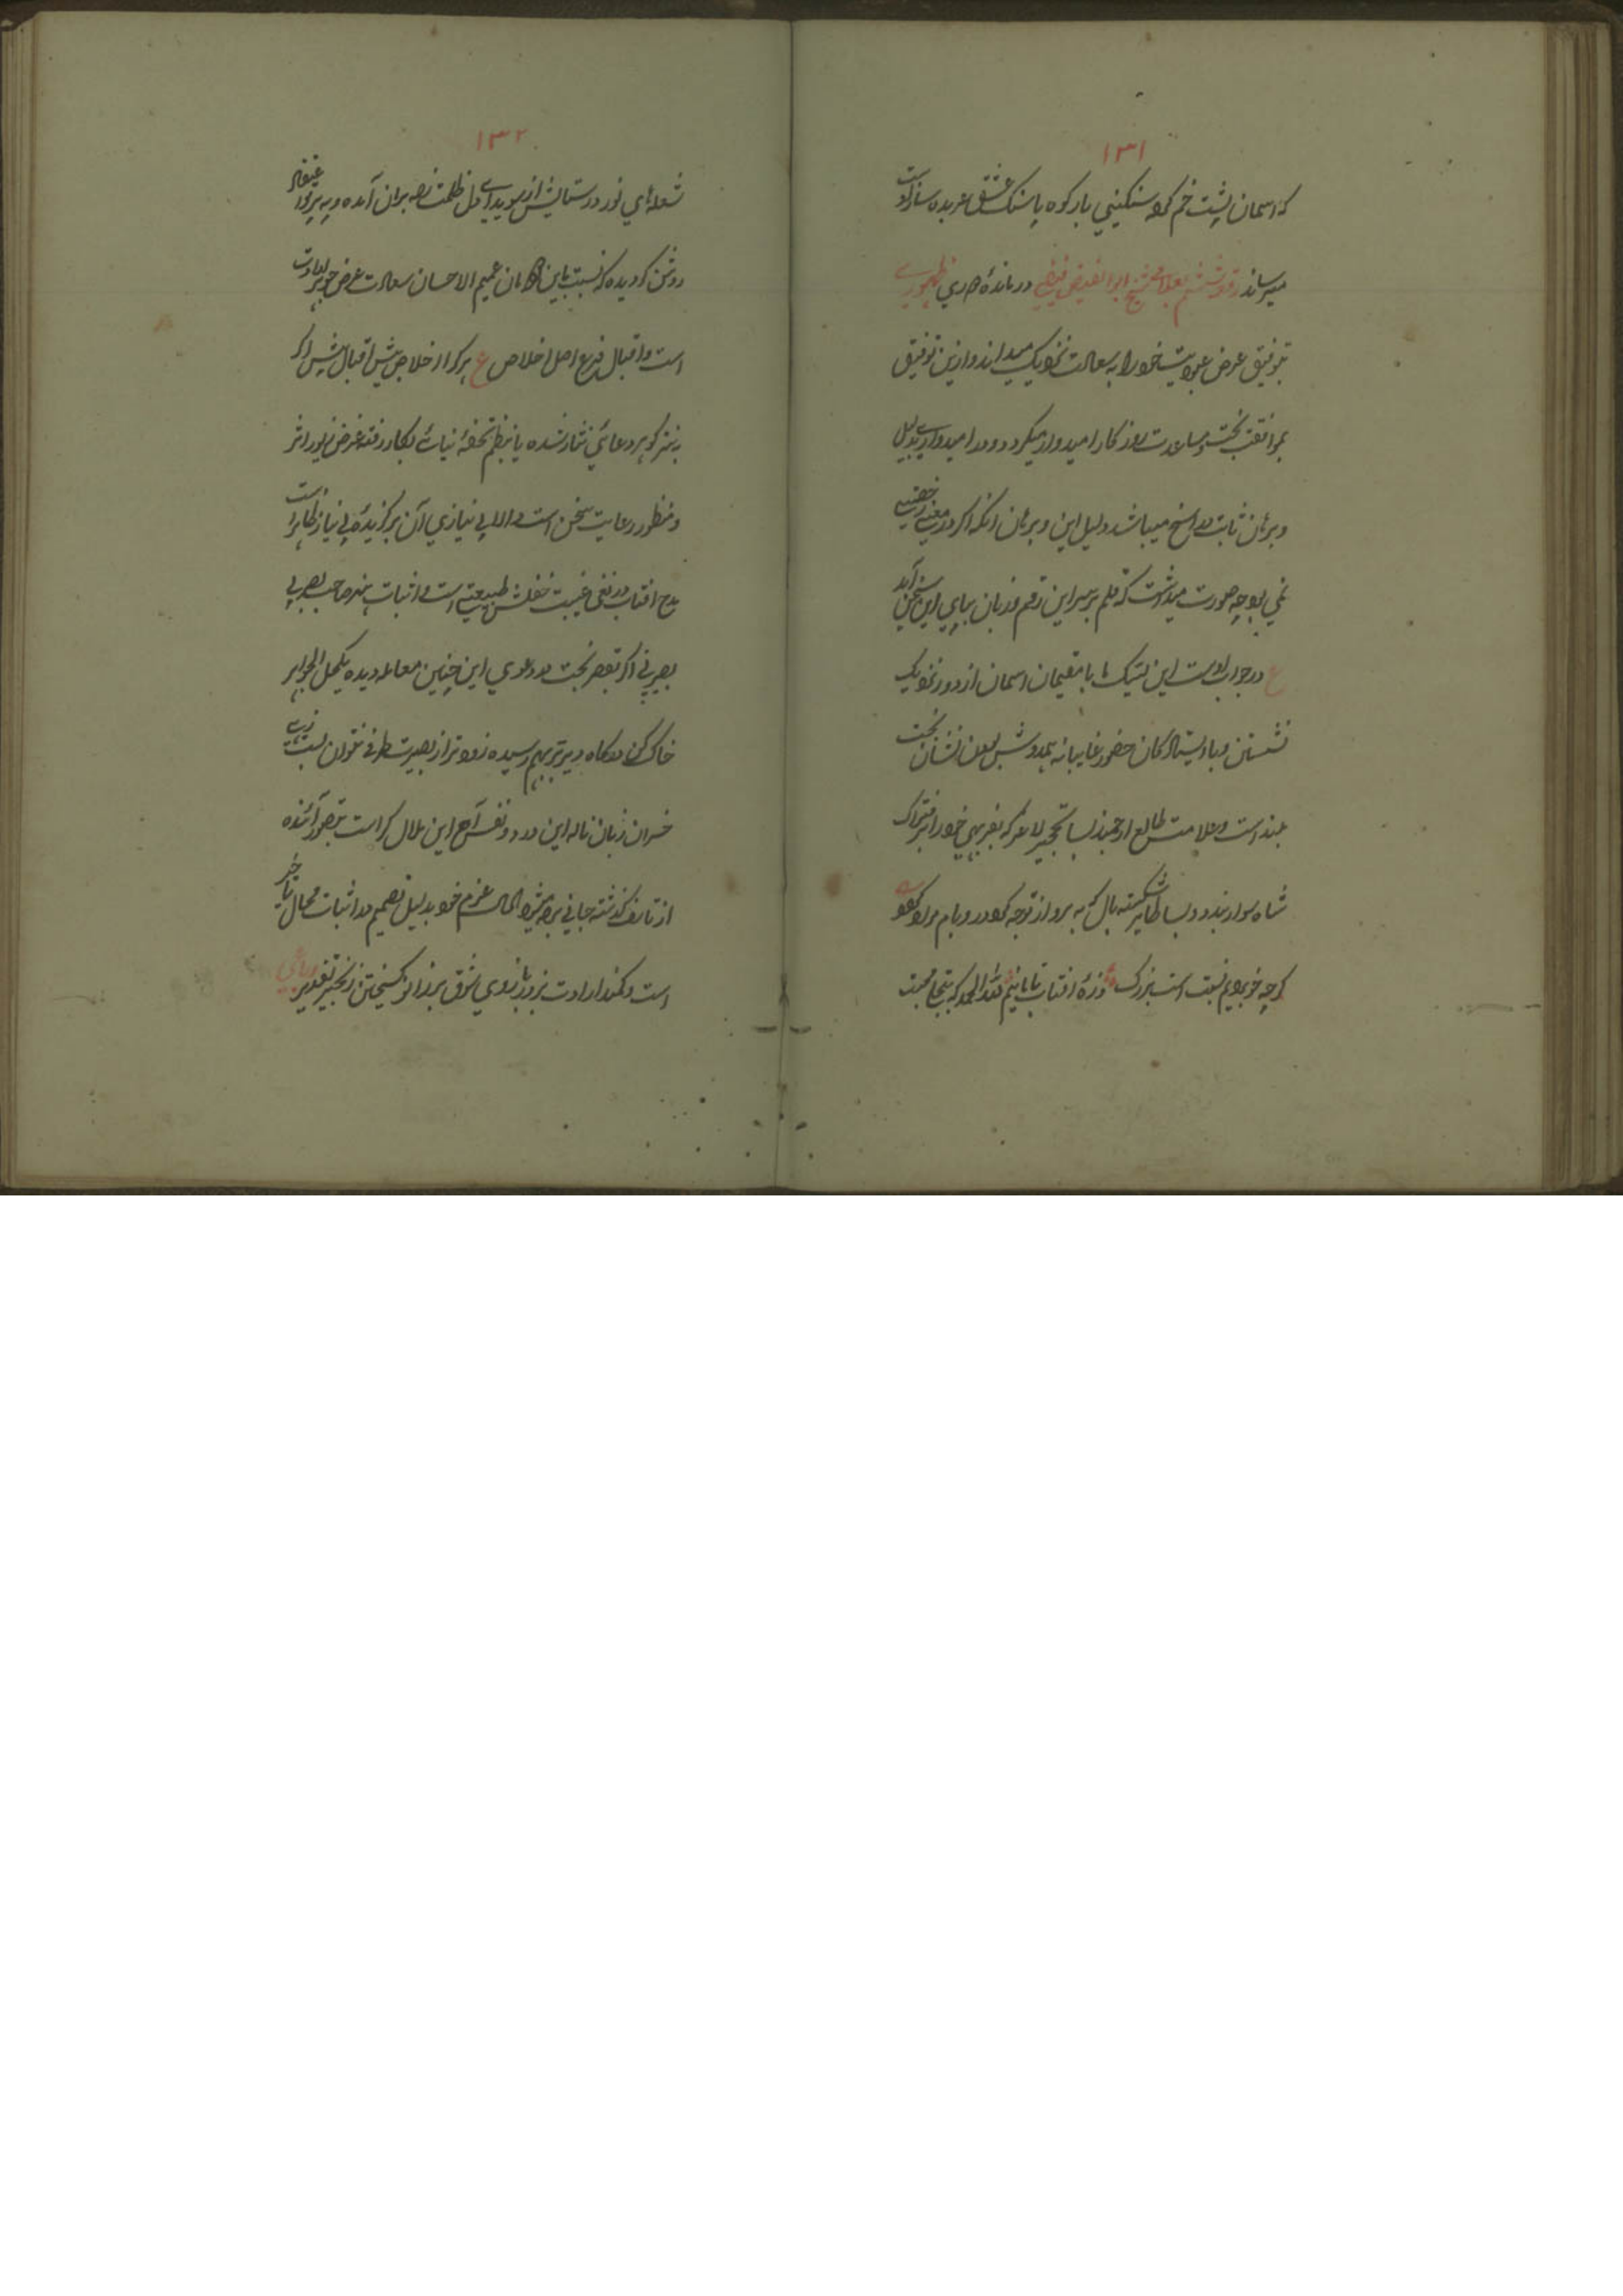 ۱۳۱
که اسمان پشت خم کرده سنکینی بار کوه با سنک عشق عربده ساز اوست
میرساند رقعه ششم بعلامی شیخ ابوالفیض فیضی درمانده دوری ظهوری
بتوفیق عرض عبودیت خود را به سعادت نزدیک میداند و ازین توفیق
بموافقت بخت و مساعدت روزکار امیدوار میکردد و در امیدواری بدلیل
و برهان ثابت و راسخ میباشد دلیل این و برهان انکه اکر در معنی رخصتی
نمی بود چه صورت میداشت که قلم بر سر این رقم و زبان بپای این سخن آید
ع در جواب اوست این لبیک ما با مقیمان اسمان از دور نزدیک
نشستن و با ایستادکان حضور غایبانه همدوش بودن نشان بخت
بلند است و علامت طالع ارجمند بسا نخجیر لاغر که بفربهی خود را بر فتراک
شاه سوار بندد و بسا طایر شکسته بال که به پرواز توجه کرد در و بام مراد کردد
کرچه خوردیم نسبت است بزرک ذره افتاب تابانیم لله الحمد که بتجلی محبت
۱۳۲
شعله‌ای نور در ستایش از سویدای دل ظلمت زده بران آمده و به پرتو
روشن کردیده که نسبت باین عمیم الاحسان سعادت عرض جوهر ارادت
است و اقبال فرع اصل اخلاص ع هر که را اخلاص بیش اقبال بیش اکر
به نثر کوهر دعائی نثار شده یا بنظم تحفه نیات بکار رفته غرض زیور اثر
و منظور رعایت سخن است والا بی نیازی آن برکزیده بی نیاز ظاهر است
مدح افتاب در نفی غیبت خفاش طبیعتی است و اثبات هنر صاحب بصری
بصری اکر بقصر بخت در دعوی این چنین معامله دیده بکحل الجواهر
خاک آن درکاه دیرتر بهم رسیده زودتر از بصیرت طرفی نتوان بست زهی
خسران زبان ناله این درد و نفس آه این ملال کراست بتصور آینده
از تارف کذشته جانی بر عزم خود بدلیل تصمیم در اثبات محال تاخیر
است و کمند ارادت بزور بازوی شوق بر زانو کسیختن زنجیر تقدیر رباعی